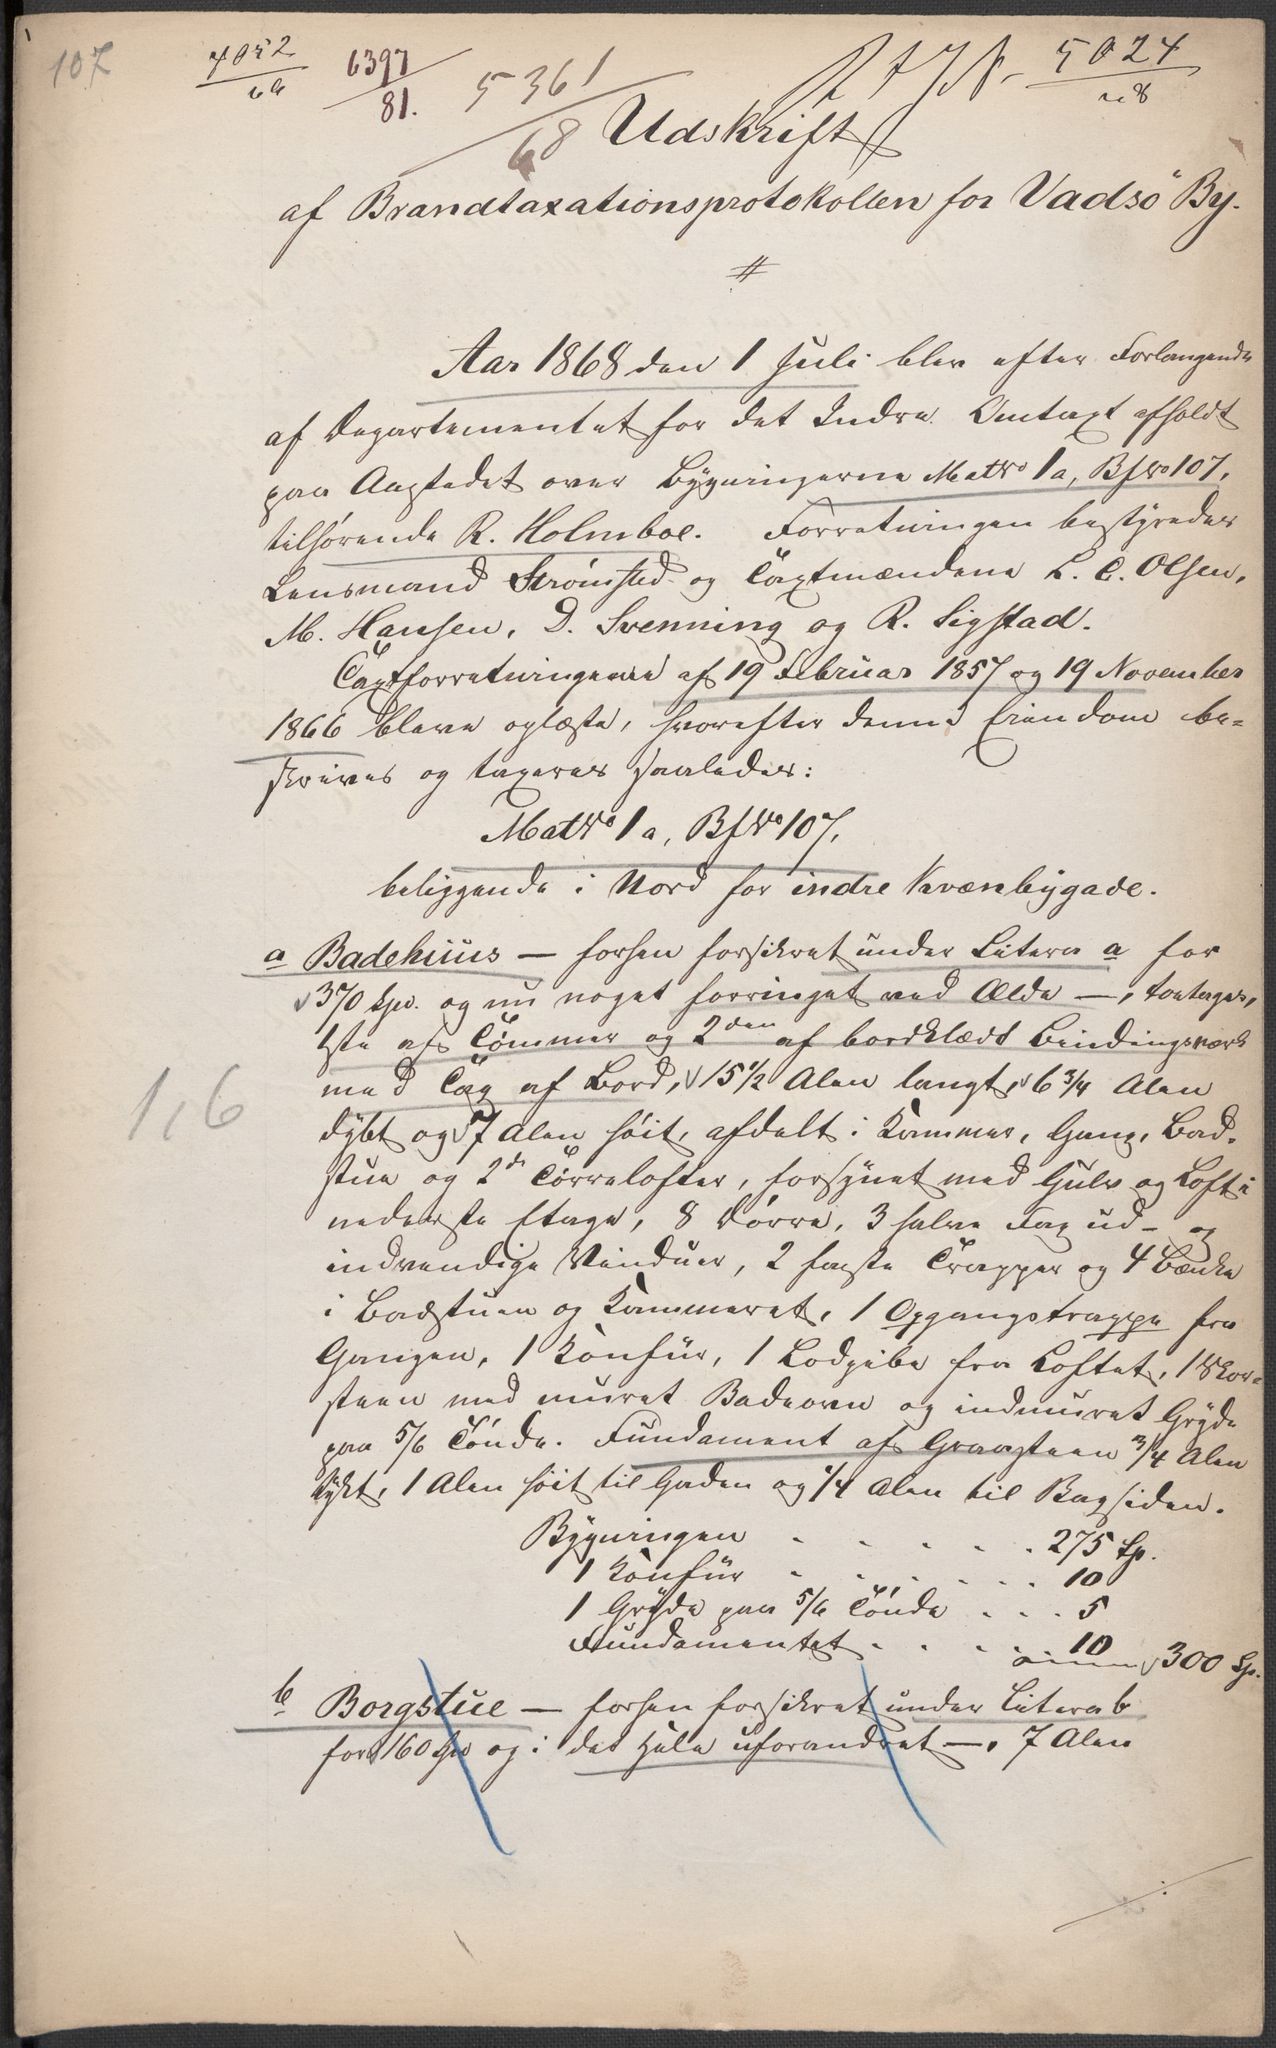 107
6397
81.
5361
68
5024
Udskrift
af Brandtaxationsprotokollen for Vadsö By.
#
Aar 1868 den 1 Juli blev efter Forlangende
af Departementet for det Indre Omtaxt afholdt
paa Aastedet over Bygningerne Mat No 1a, Bf No 107,
tilhørende R. Holmboe. Forretningen bestyredes
Lensmand Strömsted og Taxtmændene L. C. Olsen,
M. Hansen, D. Svenning og R. Sigstad.
Taxtforretningerne af 19 Februar 1857 og 19 November
1866 bleve oplæste, hvorefter denne Eiendom be-
skrives og taxeres saaledes:
Mat No 1a, Bf No 107,
beliggende i Nord for indre Kvænbygade.
a Badehuus — forhen forsikret under Litera a for
370 Spd. og nu noget forringet ved Ælde —, toetages,
1ste af Tømmer og 2den af bordklædt Bindingsværk
med Tag af Bord, 15 1/2 Alen langt, 6 3/4 Alen
1,6
dybt og 7 Alen høit, afdelt i Kammer, Gang, Bad-
stue og 2de Tørrelofter, forsynet med Gulv og Loft i
nederste Etage, 8 Dørre, 3 halve Fag ud- og
indvendige Vinduer, 2 faste Trapper og 4 Bænke
i Badstuen og Kammeret, 1 Opgangstrappe fra
Gangen, 1 Komfür, 1 Lodpibe fra Loftet, 1 Skor-
steen med muret Badeovn og indmuret Gryde
paa 5/6 Tønde. Fundament af Graasteen 3/4 Alen
tykt, 1 Alen høit til Gaden og 1/4 Alen til Bagsiden.
Bygningen . . . . . 275 Sp.
1 Komfür . . . . . . 10
1 Gryde paa 5/6 Tönde . . . 5
Fundamentet . . . . . 10
300 Sp.
b Borgstue — forhen forsikret under Litera b
for 160 Spd og i det Hele uforandret —, 7 Alen